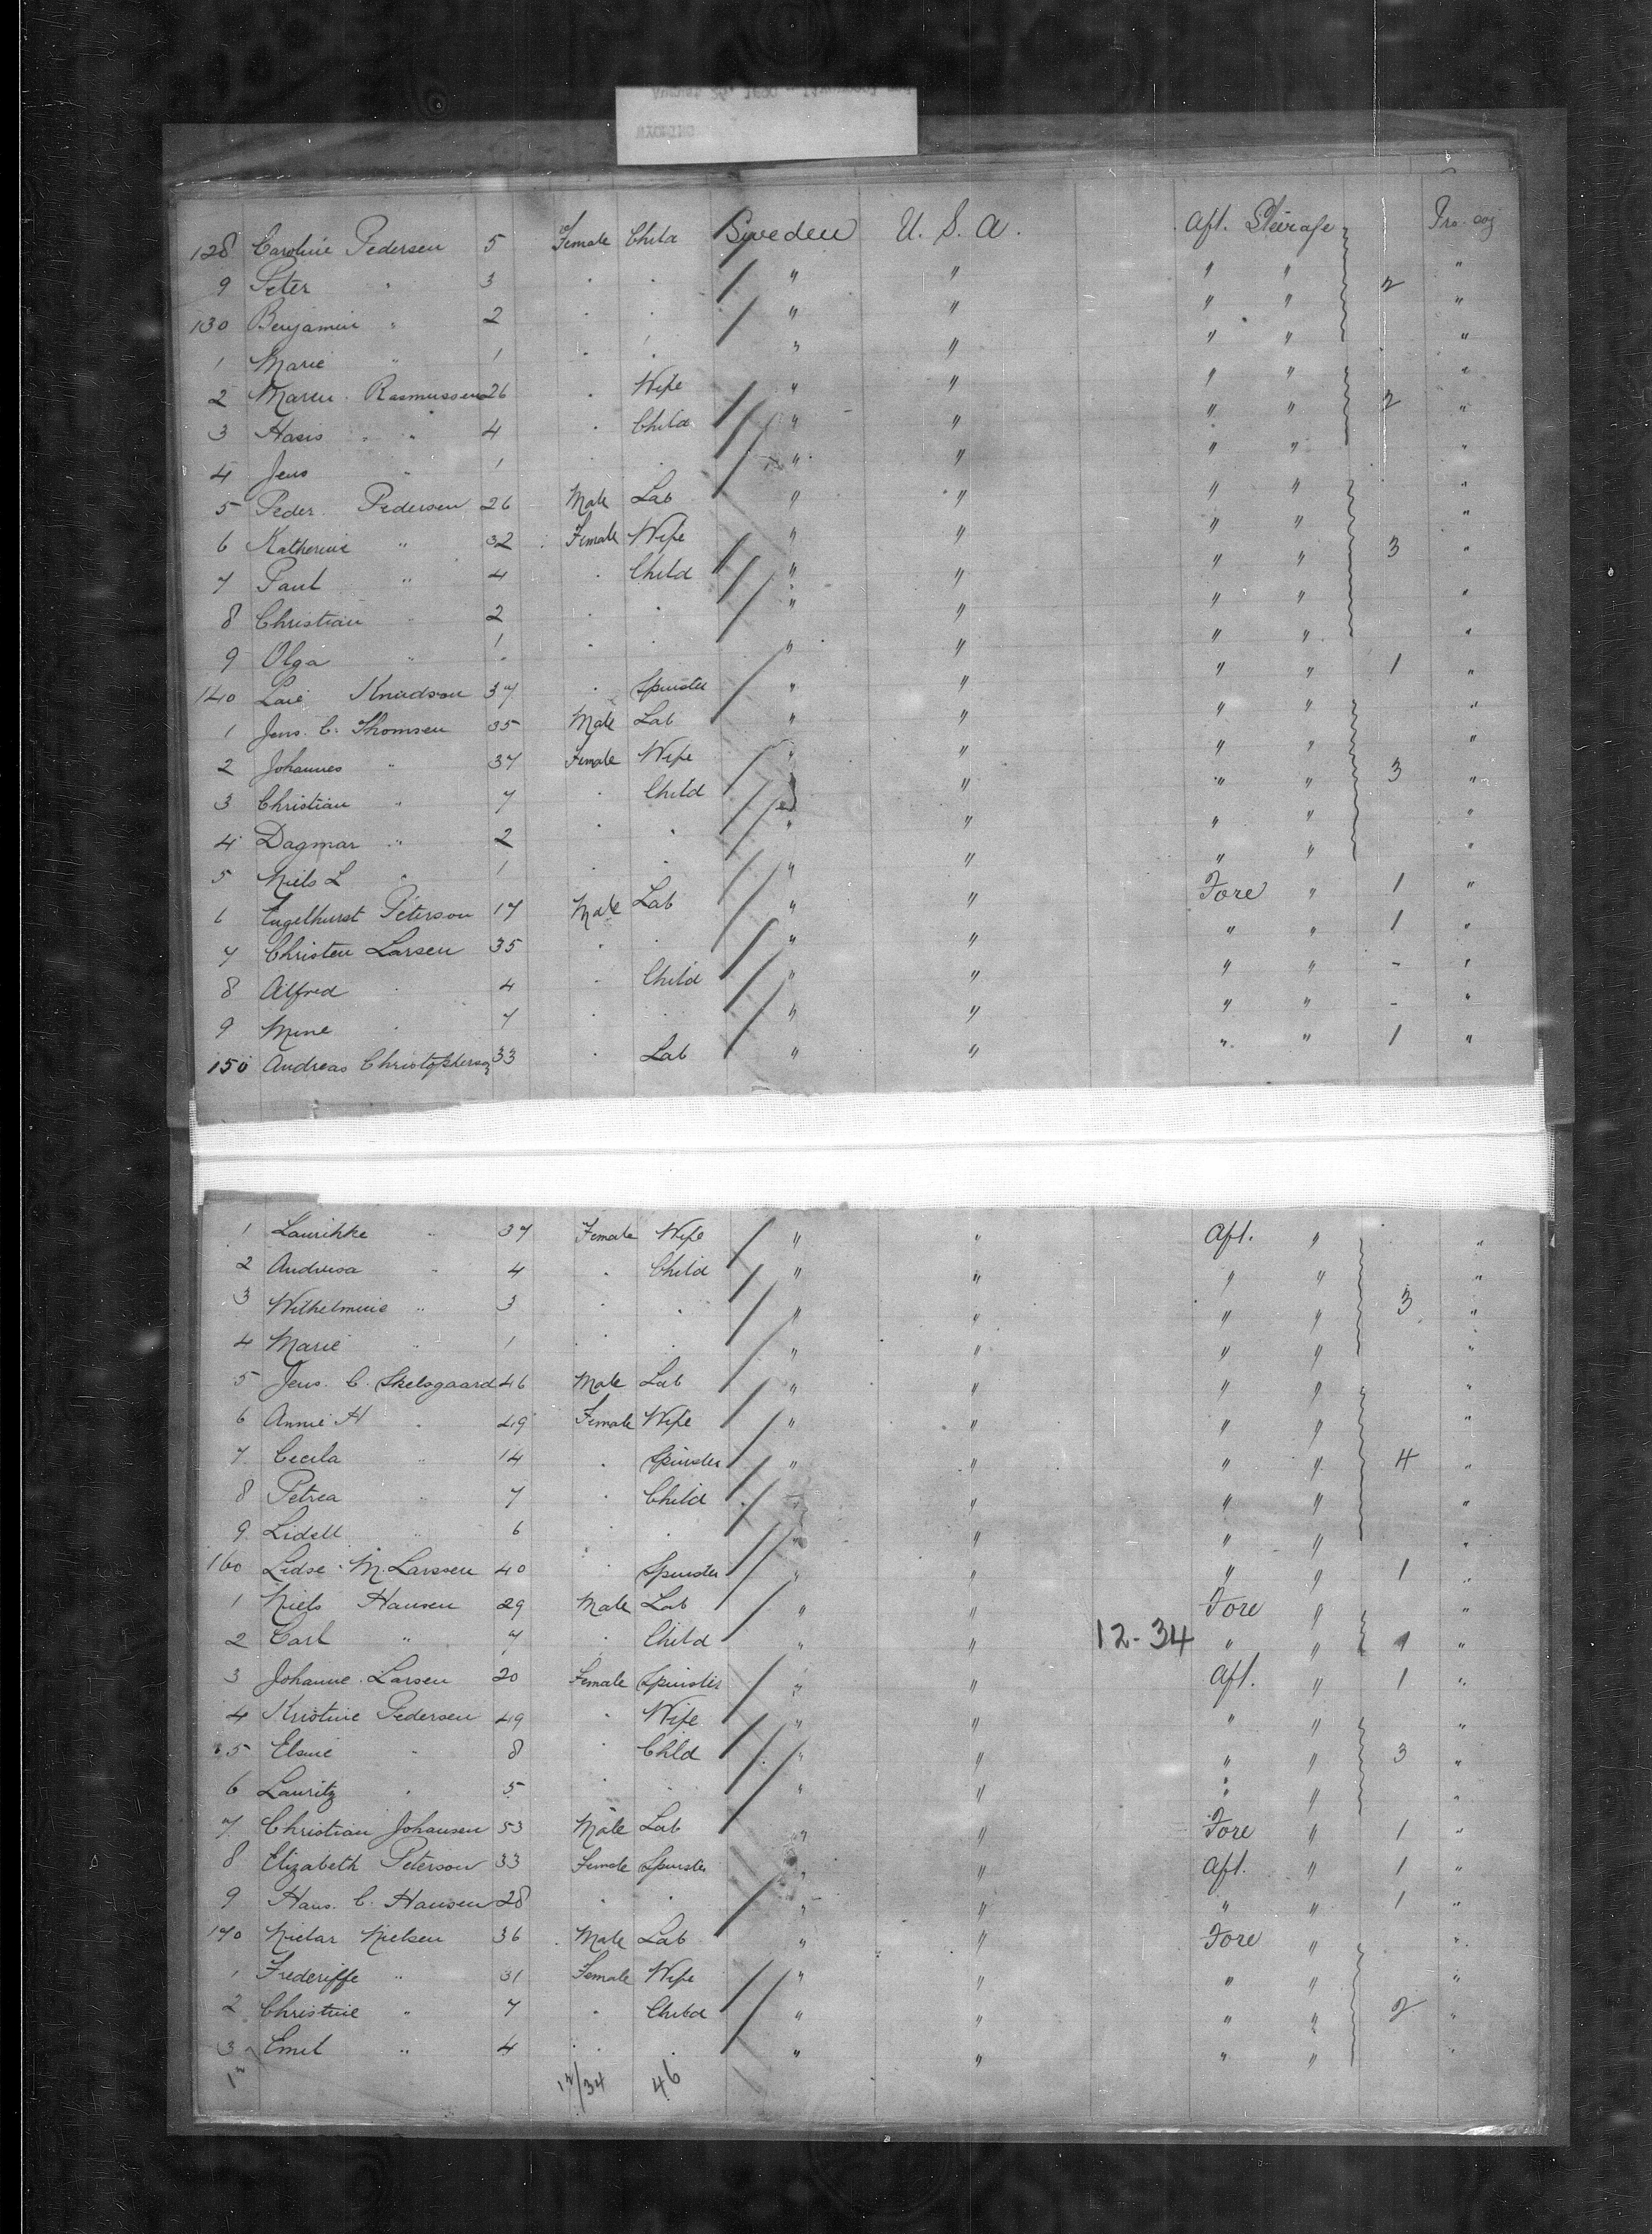 128 Caroline Pedersen 5 Female Child Sweden U. S. A. Aft. Steerage
9 Peter " 3 " " " " " " 2 "
130 Benjamin " 2 " " " " " " "
1 Marie " 1 " " " " " " "
2 Maren Rasmussen 26 " Wife " " " " "
3 Hans " 4 " Child " " " " 2 "
4 Jens " 1 " " " " " " "
5 Peder Pedersen 26 Male Lab " " " " "
6 Katherine " 32 Female Wife " " " " "
7 Paul " 4 " Child " " " " 3 "
8 Christian " 2 " " " " " " "
9 Olga " 1 " " " " " " "
140 Knudson 37 " Spinster " " " " 1 "
1 Jens. C. Thomsen 35 Male Lab " " " " "
2 Johannes " 37 Female Wife " " " " "
3 Christian " 7 " Child " " " " 3 "
4 Dagmar " 2 " " " " " " "
5 Niels L " 1 " " " " " " "
6 Engelhurst Peterson 17 Male Lab " " Fore " 1 "
7 Christen Larsen 35 " " " " " " 1 "
8 Alfred " 4 " Child " " " " - "
9 Mine " 7 " " " " " " - "
150 Andreas Christophersen 33 " Lab " " " " 1 "
1 Laurikke " 37 Female Wife " " Aft. " "
2 Andresa " 4 " Child " " " " "
3 Wilhelmine " 3 " " " " " " 3 "
4 Marie " 1 " " " " " " "
5 Jens. C. Skelsgaard 46 Male Lab " " " " "
6 Annie H " 49 Female Wife " " " " "
7 Cecila " 14 " Spinster " " " " 4 "
8 Petrea " 7 " Child " " " " "
9 Lidell " 6 " " " " " " "
160 Lidse M. Larssen 40 " Spinster " " " " 1 "
1 Niels Hansen 29 Male Lab " " Fore " "
2 Carl " 7 " Child " " 12-34 " " 1 "
3 Johanne Larsen 20 Female Spinster " " Aft. " 1 "
4 Kristine Pedersen 49 " Wife " " " " "
5 Elsie " 8 " Chld " " " " 3 "
6 Lauritz " 5 " " " " " " "
7 Christian Johansen 53 Male Lab " " Fore " 1 "
8 Elizabeth Peterson 33 Female Spinster " " Aft. " 1 "
9 Hans. C. Hansen 28 " " " " " " 1 "
170 Nielsen 36 Male Lab " " Fore " "
1 Frederiffe " 31 Female Wife " " " " "
2 Christine " 7 " Child " " " " 2 "
3 Emil " 4 " " " " " " "
12/34 46